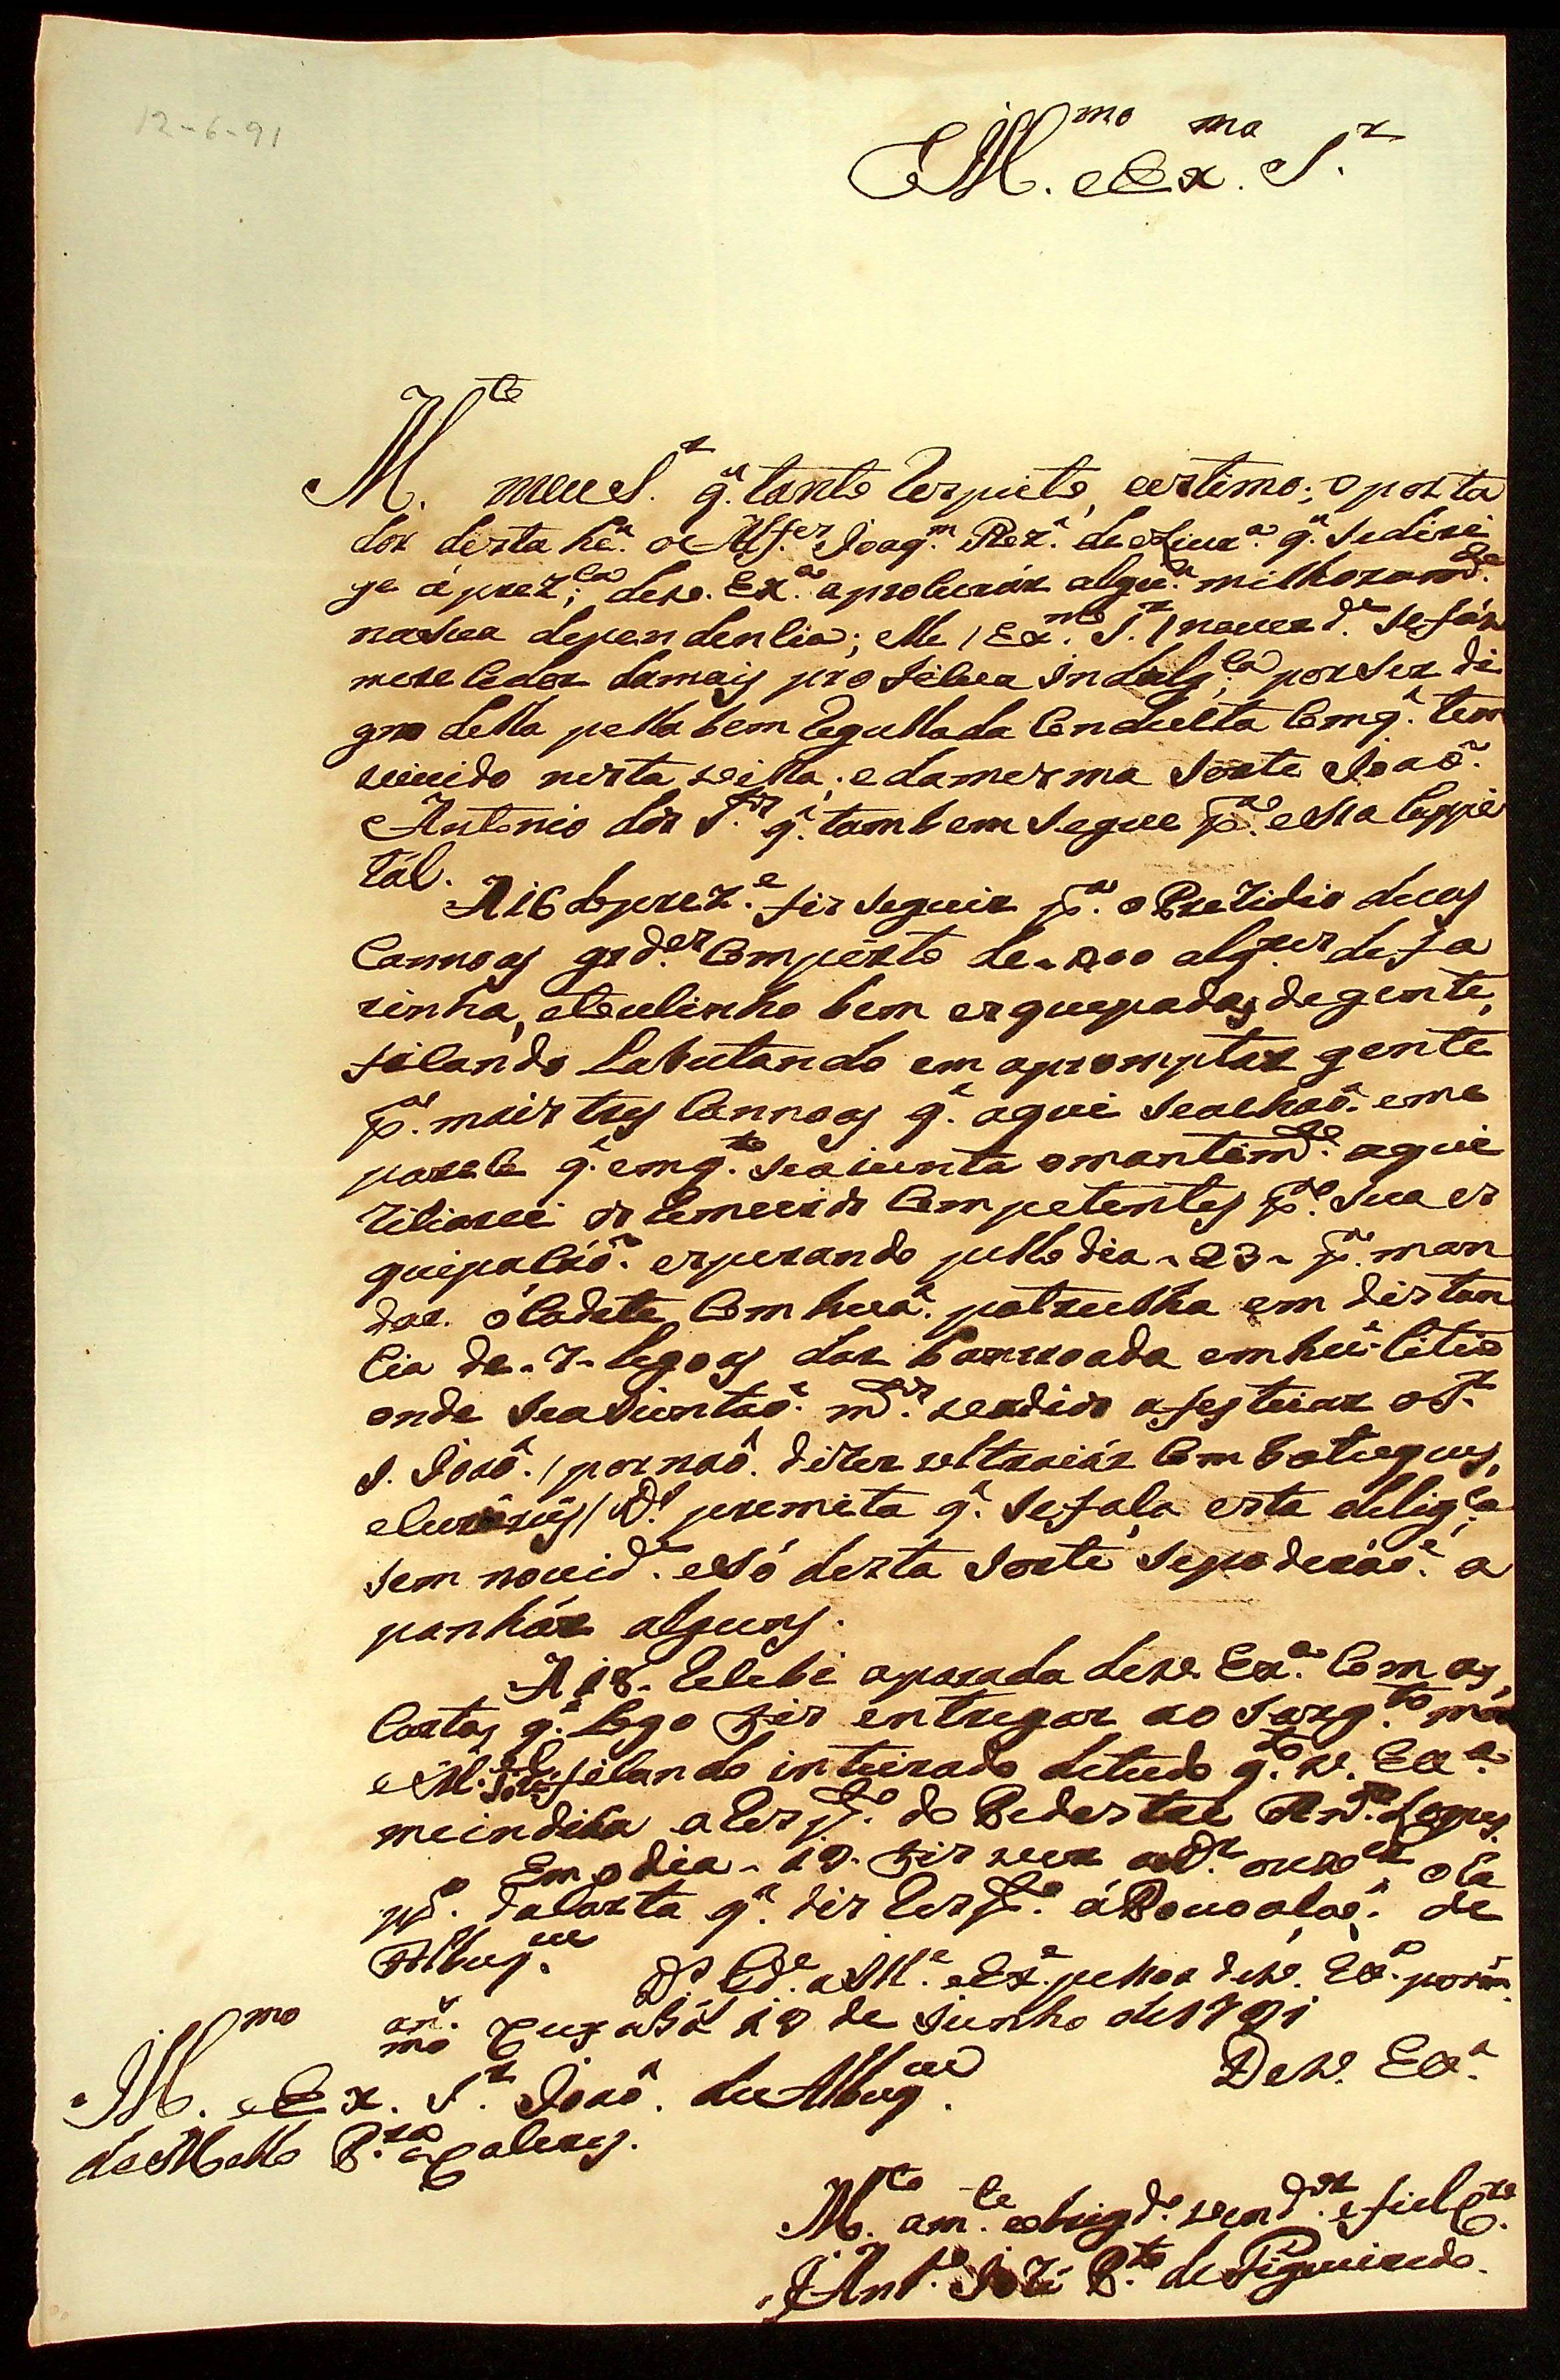 12-6-91
Ill.mo e Ex.mo S.r
M.to
meu S.r q̃. tanto respeito, eestimo; o porta
dor desta hé o Alf.es Joaq.m Per.ª de Oliur.ª q̃. sediri
ge á prez.ca deV. Ex.ª aprocurár algũ milhoram.to
nasua dependencia; elle / Ex.mo S.r / naverd.e sefáz
merecedor damais propicua Indulg.ca porser di
gno della pella bem regullada Conducta Comq̃. tem
vivido nesta villa; edamesma Sorte Joaõ
Antonio dos S.tos q̃. tambem segue p.ª essa Cappi
tál.
A 16 do prez.e fis seguir p.ª o Prezidio duas
Cannoas grd.es Comperto de 200 alq.res defa
rinha, etoucinho bem esquepadas degente,
ficando Labutando em apromptar gente
p.ª mais tres Cannoas q̃. aqui seachaõ eme
parece q̃. emq.to seajunta omantim.to aqui
Competentes p.ª sua es
quipaçaõ esperando pello dia 23 p.ª man
dar o Cadete Com huã patrulha em distan
cia de 7 legoas das barroada emhũ Citio
onde seajuntaõ m.tos vadios afestejar o S.r
S. Joaõ / pornaõ dizer ultrajár Combatuques,
ecururús / D.s premita q̃. sefaça esta delig.ca
sem novid.e esó desta Sorte sepoderáõ a
panhár alguns.
A 18 recebi aparada deV. Ex.ª Com as
Cartas q̃. logo fis entregar ao Sarg.to mór
eM.e de C.po ficando inteirado detudo q.to V. Ex.ª
meindica aresp.to do Pedestre And.e Lopes.
Em o dia 19 fis ver ao D.r ouv.or o Ca
pp.o daCarta q̃. dis resp.to áPovoaçaõ de
Albuq.ue
D.s G.de a Ill.e eEx.e peSsoa deV. Ex.ª porm.
an.s Cuyabá 19 de Junho de1791
mo
DeV. Ex.ª
Ill.mo e Ex. S.r Joaõ de Albuq.ue
deMello P.ra eCaceres.
M.to am.te eobrigd.o vend.or e fiel C.do
Ant.o Jozé P.to deFigueiredo.